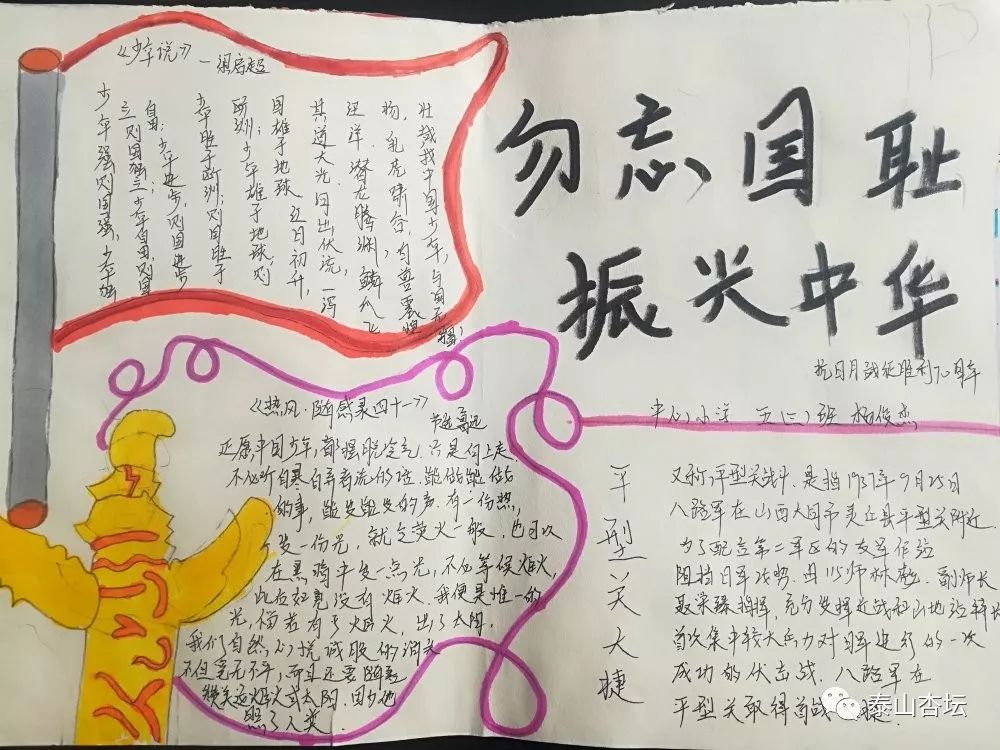 《少年说》
—梁启超
少年强则国强,少年独
立则国独立;少年自由,则国
自由;少年进步,则国进步;
少年胜于欧洲,则国胜于
欧洲;少年雄于地球,则
国雄于地球。红日初升,
其道大光。河出伏流,一泻
汪洋。潜龙腾渊,鳞爪飞
扬,乳虎啸谷,百兽震惶
壮哉我中国少年,与国无疆!
勿忘国耻
振兴中华
抗日战征胜利70周年
中心小学 五(三)班 杨俊杰
《热风·随感录四十一》
鲁迅
愿中国少年,都摆脱冷气,只是向上走,
不必听自暴自弃者流的话。能做能做
的事,能发能发的声。有一份热,
发一份光,就令萤火一般,也可以
在黑暗中发一点光,不必等候炬火,
此后如竟没有炬火。我便是唯一的
光,倘若有了炬火,出了太阳。
我们自然心悦诚服的消失
不但毫无不平,而且还要随喜
赞美这炬火或太阳。因为他
照了人类
平型关大捷
又称平型关战斗,是指1937年9月25日
八路军在山西大同市灵丘县平型关附近,
为了配应第二军区的友军作战
阻挡日军攻势。由115师林彪、副师长
聂荣臻指挥,充分发挥近战和山地战特长
首次集中较大兵力对日军进行的一次
成功的伏击战。八路军在
平型关取得首战
泰山杏坛